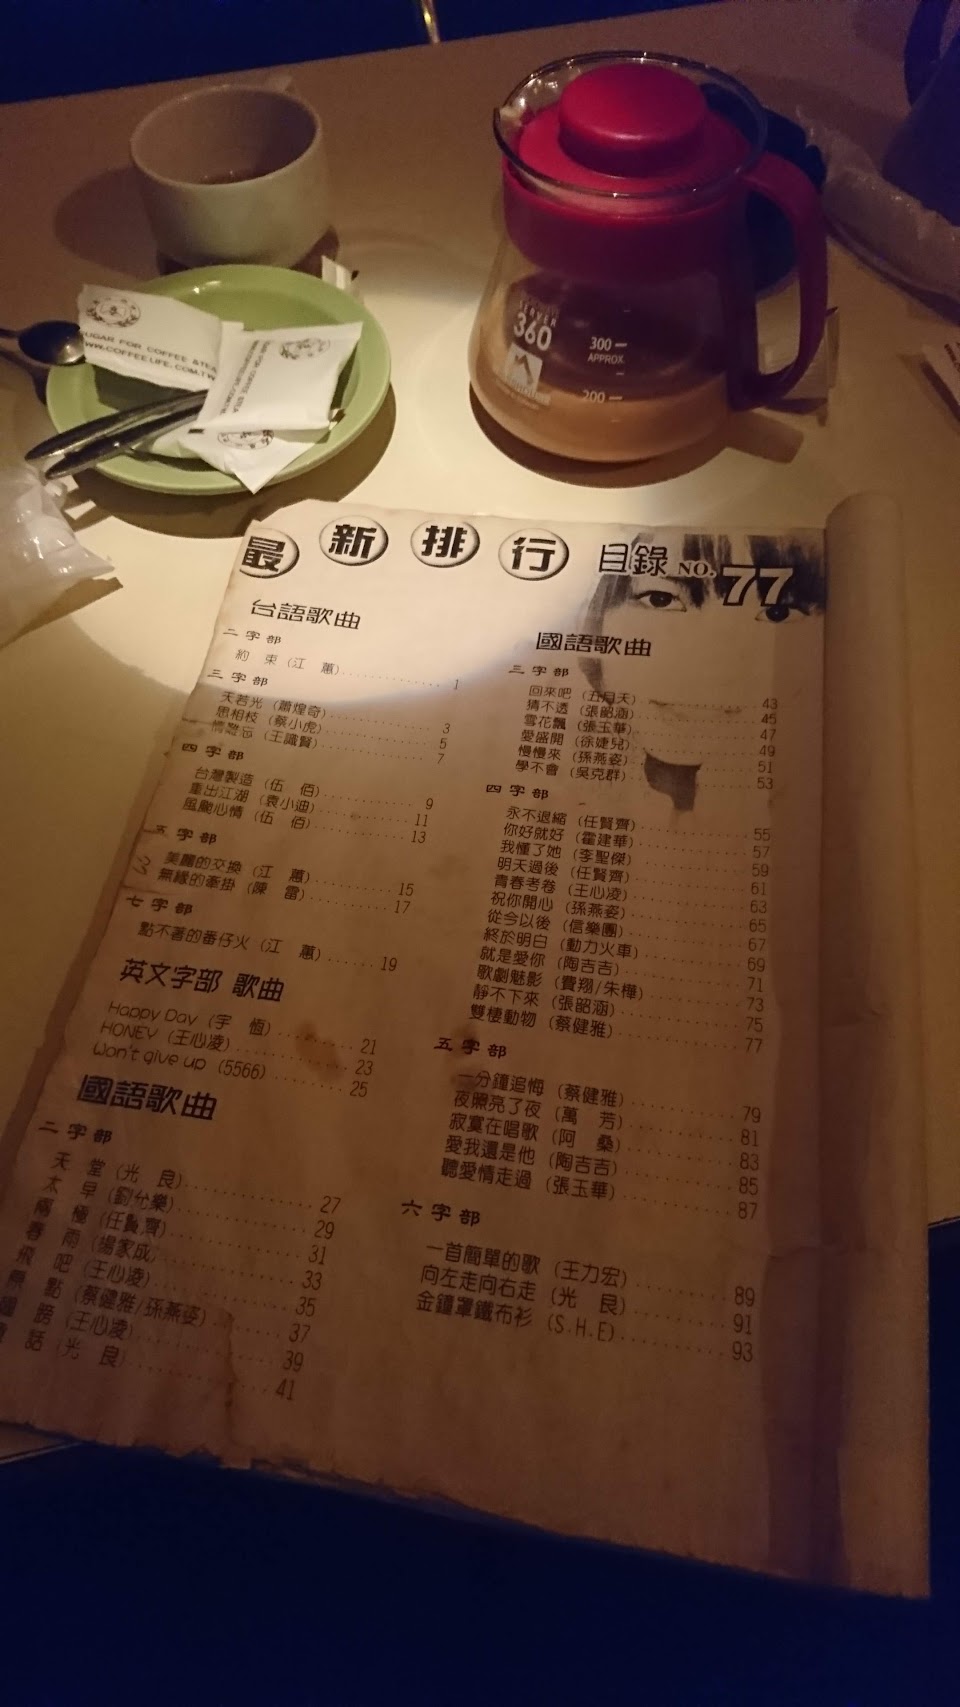 SUGAR FOR COFFEE &TEA
WWW.COFFEELIFE.COM.TW
SERVER
360
300
APPROX.
200
最新排行 目錄 NO.77
台語歌曲
二字部
約 束 (江 蕙) 1
三字部
天若光 (蕭煌奇) 3
思相枝 (蔡小虎) 5
情難忘 (王識賢) 7
四字部
台灣製造 (伍 佰) 9
重出江湖 (袁小迪) 11
風颱心情 (伍 佰) 13
五字部
美麗的交換 (江 蕙) 15
無緣的牽掛 (陳 雷) 17
七字部
點不著的番仔火 (江 蕙) 19
英文字部 歌曲
Happy Day (宇 恆) 21
HONEY (王心凌) 23
Won't give up (5566) 25
國語歌曲
二字部
天 堂 (光 良) 27
太 早 (劉允樂) 29
兩 極 (任賢齊) 31
春 雨 (楊家成) 33
飛 吧 (王心凌) 35
原 點 (蔡健雅/孫燕姿) 37
翅 膀 (王心凌) 39
話 (光 良) 41
國語歌曲
三字部
回來吧 (五月天) 43
猜不透 (張韶涵) 45
雪花飄 (張玉華) 47
愛盛開 (徐婕兒) 49
慢慢來 (孫燕姿) 51
學不會 (吳克群) 53
四字部
永不退縮 (任賢齊) 55
你好就好 (霍建華) 57
我懂了她 (李聖傑) 59
明天過後 (任賢齊) 61
青春考卷 (王心凌) 63
祝你開心 (孫燕姿) 65
從今以後 (信樂團) 67
終於明白 (動力火車) 69
就是愛你 (陶吉吉) 71
歌劇魅影 (費翔/朱樺) 73
靜不下來 (張韶涵) 75
雙棲動物 (蔡健雅) 77
五字部
一分鐘追悔 (蔡健雅) 79
夜照亮了夜 (萬 芳) 81
寂寞在唱歌 (阿 桑) 83
愛我還是他 (陶吉吉) 85
聽愛情走過 (張玉華) 87
六字部
一首簡單的歌 (王力宏) 89
向左走向右走 (光 良) 91
金鐘罩鐵布衫 (S.H.E) 93